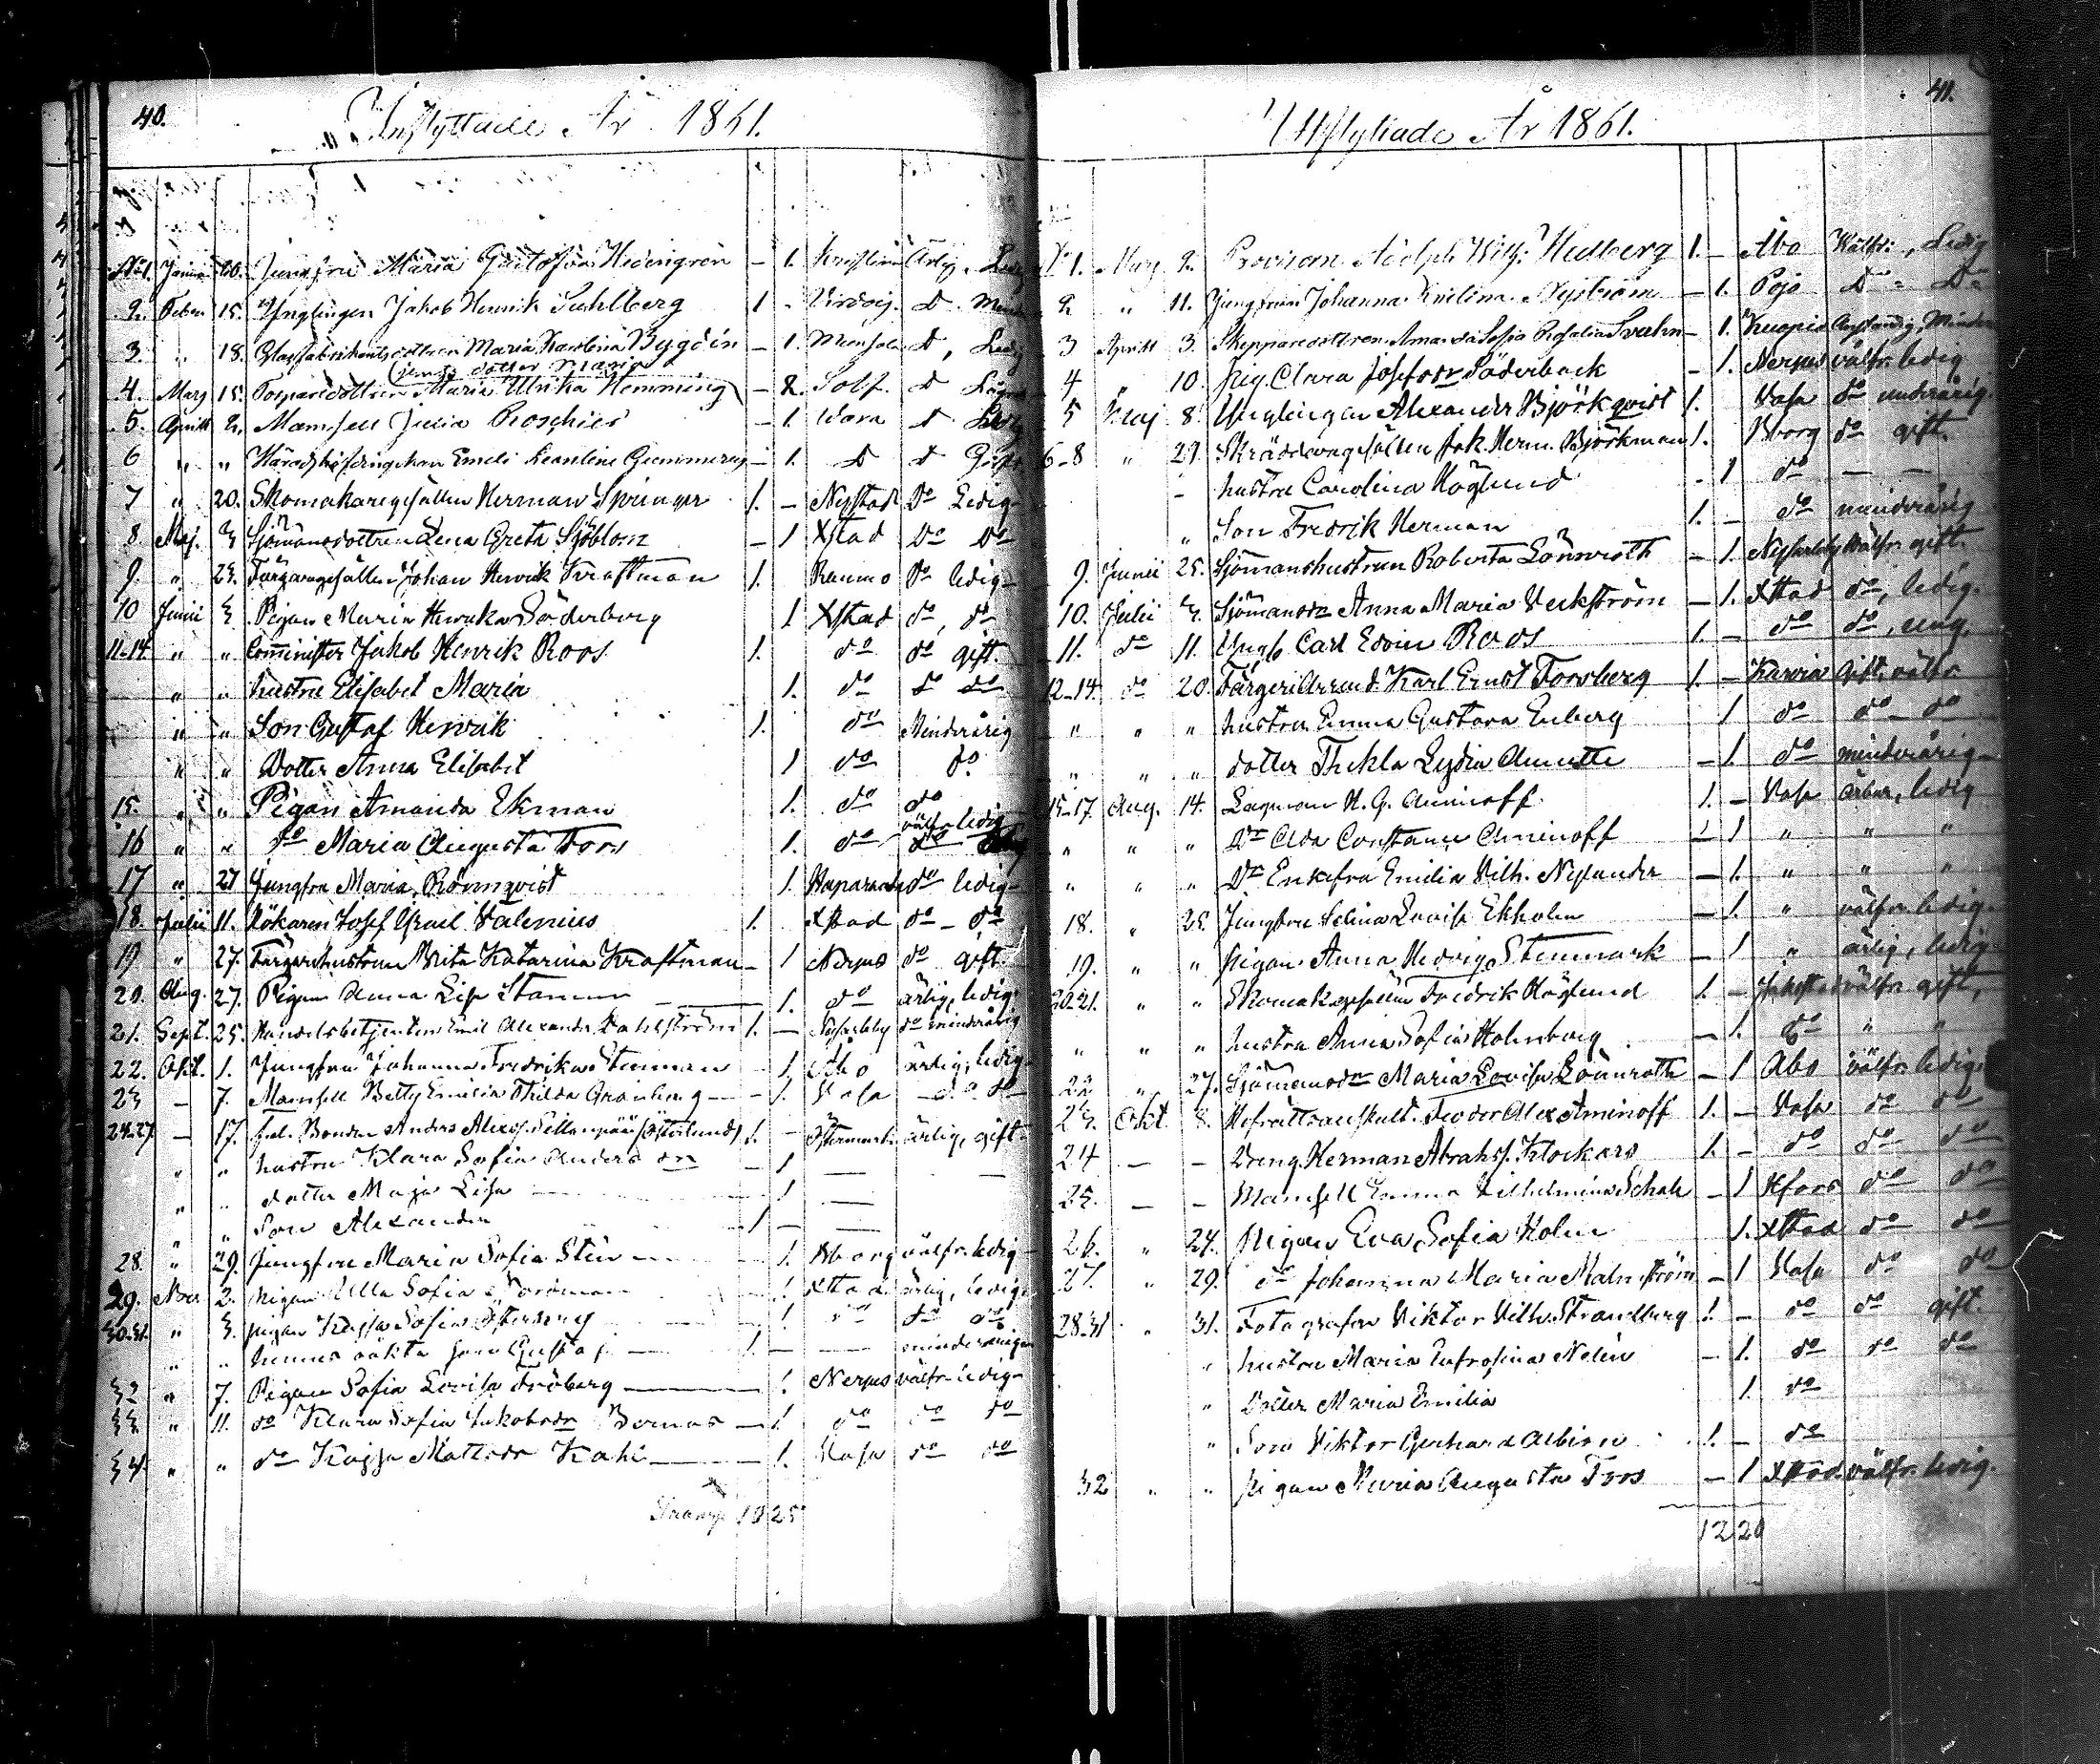 40.
Inflyttade År 1861.
N:o 1. Janua 20. Jungfru Maria Gustafva Hedengren – 1. Kristine Ärlig, Ledig
2. Febru 15. Ynglingen Jakob Henrik Sahlberg 1 -
3. " 18. Glasfabrikantsdottren Maria Karolina Bygdén – 1. D, Ledig
jemte dotter Maria
4. Mars 15. Torparedottren Maria Ulrika Hemming – 2. Solf. D
5. Aprill 2. Mamsell Julia Roschier – 1. Wasa D Ledig
6 " " Häradshöfdingskan Emeli Karoline Gummerus – 1. D D Gift
7 " 20. Skomakaregesällen Herman Springer 1. – Nystad Do Ledig
8. Maj. 3 Sjömansdottren Lena Greta Sjöblom – 1 Xstad Do Do
9. " 23. Färgaregesällen Johan Henrik Kraftman 1. Raumo Do ledig
10 Junii 3. Pigan Maria Henrika Söderberg 1 Xstad do, do
11-14 " " Comminister Jakob Henrik Roos 1. do do gift.
" " hustru Elisabet Maria 1. do do do
" " Son Gustaf Henrik 1. do Minderårig
" " Dotter Anna Elisabet 1 do do
15. " " Pigan Amanda Ekman 1. do do
välfr. ledig
16 " " do Maria Augusta Fors 1. do do
17 " 27 Jungfru Maria Rönnqvist 1. Haparanda do ledig
18. Julii 11. Hökaren Josef Israel Valenius 1. Xstad do – do
19 " 27. Färgarehustrun Brita Katarina Kraftman – 1 Nerpes do gift.
20. Aug. 27. Pigan Anna Lisa Stamm 1. do ärlig, ledig
21. Sept. 25. Handelsbetjenten Emil Alexander Dahlström 1. – Nykarleby do minderårig
22. Okt. 1. Jungfru Johanna Fredrika Stenman – 1 Åbo ärlig, ledig
23 – 7. Mamsell Betty Emilia Thilda Grönberg – 1. Vasa do do
24-27 – 17. Bonden Anders Alexs. 1. – Östermark ärlig, gift.
" " hustru Klara Sofia Andersdr – 1 –
" " dotter Maja Lisa – 1 –
" " Son Alexander 1 – –
28. " 29. Jungfru Maria Sofia Stén – 1. Åborg välfr. ledig
29. Nov 2. Pigan Ulla Sofia Nordman 1 Xstad ärlig, ledig
30-31 " 3. pigan Kajsa Sofia Österberg 1 do do do
" " hennes oäkta son Gustaf 1. – minderårigen
32 " 7. Pigan Sofia Lovisa Fröberg – 1. Nerpes välfr. ledig
33 " 11. do Klara Sofia Jakobsdr Bernas – 1. do do do
34. " " do Kajsa Mattsdr Kahi – 1. Vasa do do
Summa 10 25
41.
Utflyttade År 1861.
N:o 1. Mars 2. Provisorn Adolph Wilh: Hedberg 1. – Åbo Wälfr:, Ledig
2 " 11. Jungfrun Johanna Karolina Nyström – 1. Pojo D – D
3 Aprill 3. Skepparedottren Amanda Sofia Rosalia Svahn – 1. Kuopio Anständig, Minder
4 " 10. pig. Clara Josefsdr Söderback – 1. Nerpes välfr. ledig
5 Maj 8. Ynglingen Alexander Björkqvist 1. Vasa do minderårig
6-8 " 29. Skräddaregesällen Jak. Herm. Björkman 1. Bborg do gift.
– hustru Carolina Höglund – 1 do – –
" Son Fredrik Herman 1. – do minderårig
9. Junii 25. Sjömanshustrun Roberta Lönnroth – 1. Nykarleby Välfr. gift.
10. Julii 3. Sjömansdr Anna Maria Veckström – 1. Xstad do, ledig.
11. do 11. Yngl. Carl Edvin Roos 1. – do do, ung.
12-14. do 20. Färgeriarrend. Karl Ernst Forsberg 1. – Karvia Gift, välfr
" " " hustru Emma Gustava Enberg 1 do do – do
" " " dotter Thekla Lydia Annette – 1 do minderårig
15-17. Aug. 14. Lagman H. G. Aminoff 1. – Vasa ärbar, ledig
" " " Dr Ada Constance Aminoff – 1 " " "
" " " Dr Enkefru Emilia Vilh. Nylander – 1. " " "
18. " 25. Jungfru Selma Lovisa Ekholm – 1. " välfr. ledig.
19. " " pigan Anna Hedvig Stenmark – 1 " ärlig, ledig
20-21. " " Skomakgesällen Fredrik Höglund 1. – Jakobstad välfr. gift,
" " " hustru Anna Sofia Holmberg – 1. do " "
22 " 27. Sjömansdr Maria Lovisa Lönnroth – 1 Åbo välfr. ledig.
23. Okt. 8. Hofrättsauskult. Feodor Alex Aminoff 1. – Vasa do do
24 – – Dreng. Herman Abrahs. Klockars 1. – do do do
25. – – Mamsell Emma Vilhelmina – 1 Hfors do do
26. " 24. Pigan Eva Sofia Holm 1. Xstad do do
27. " 29. do Johanna Maria Malmström – 1 Vasa do do
28-31 " 31. Fotografen Viktor Vilh. Strandberg 1. – do do gift.
" hustru Maria Eufrosina Nelin – 1. do do do
" Dotter Maria Emilia 1. do
" Son Viktor Gerhard Albion 1. – do
32 " " pigan Maria Augusta Fors – 1 Xstad välfr. ledig.
12 20